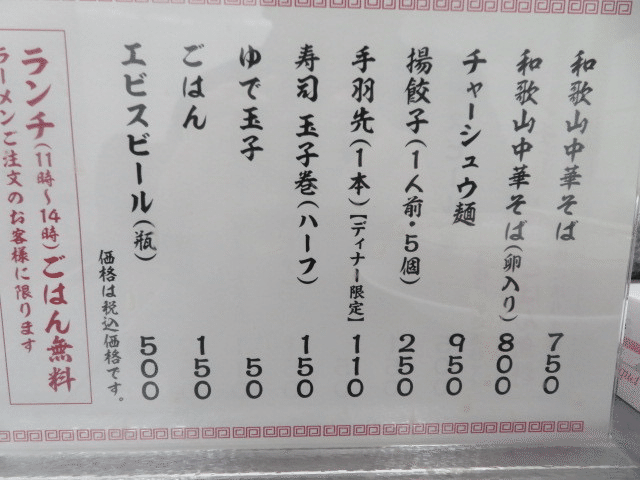 和歌山中華そば 750
和歌山中華そば(卵入り) 800
チャーシュウ麺 950
揚餃子(1人前・5個) 250
手羽先(1本)【ディナー限定】 110
寿司 玉子巻(ハーフ) 150
ゆで玉子 50
ごはん 150
エビスビール(瓶) 500
価格は税込価格です。
ランチ(11時〜14時)ごはん無料
ラーメンご注文のお客様に限ります